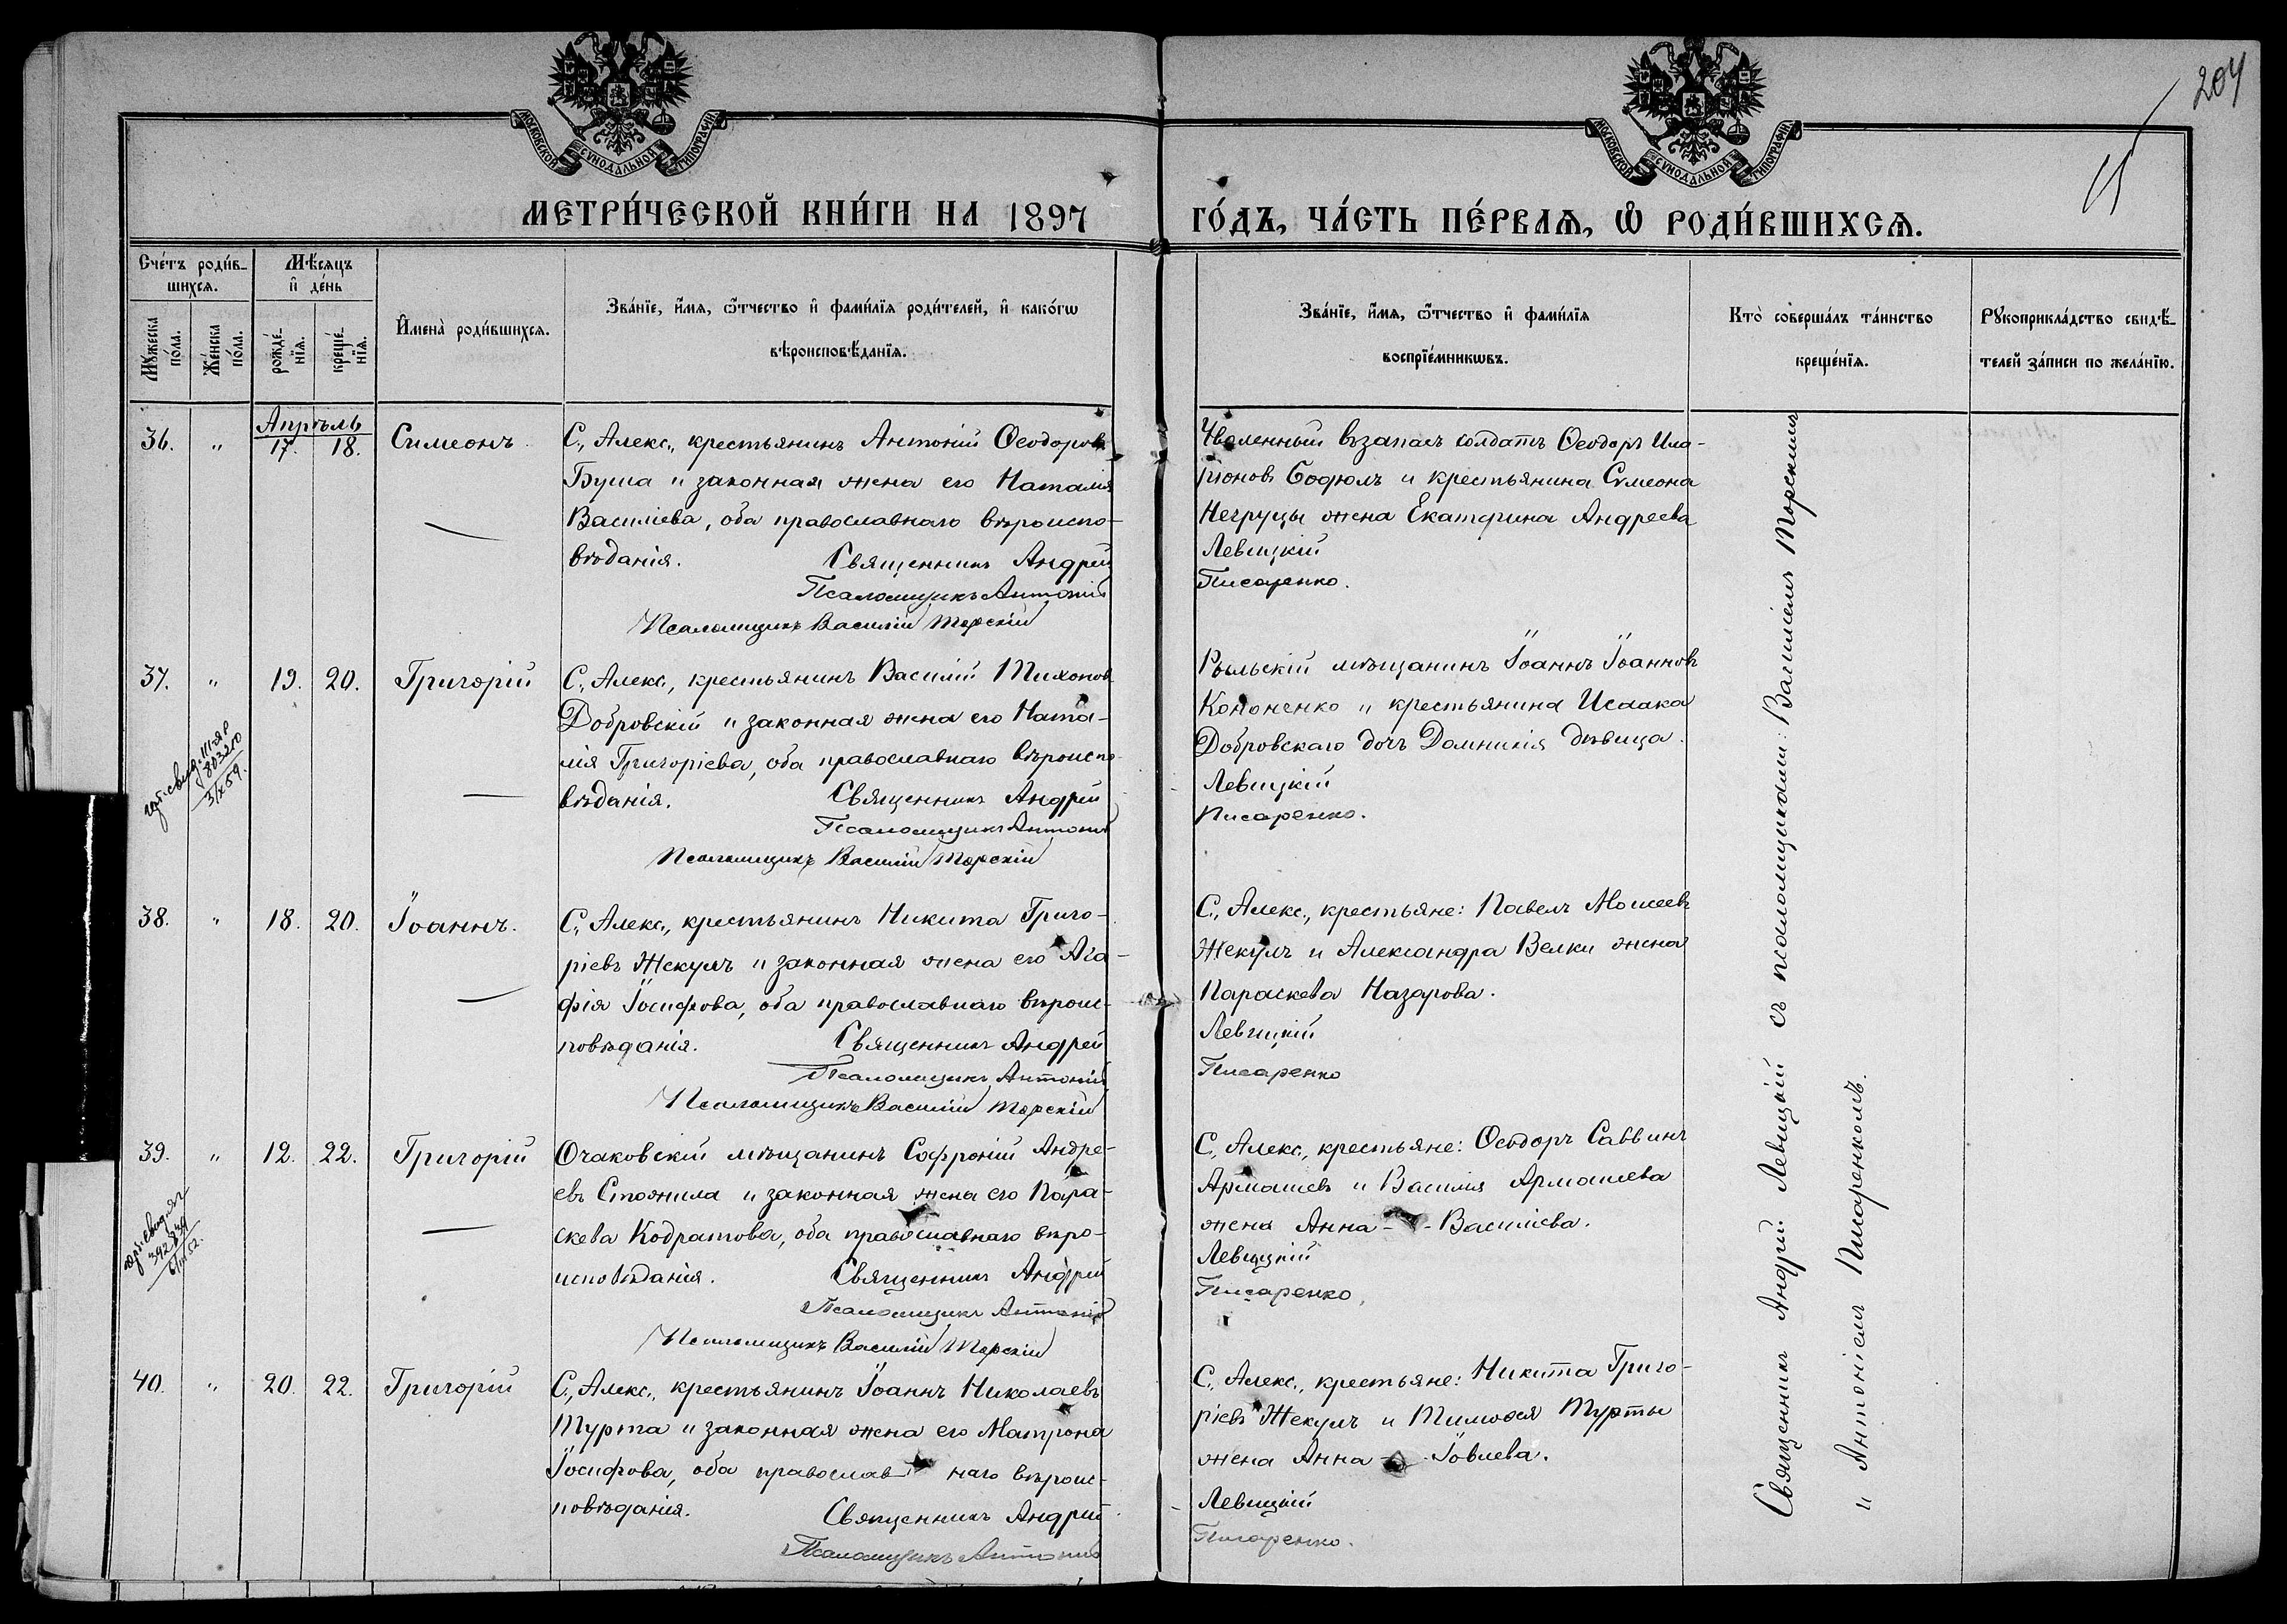 204
15
МОСКОВСКОЙ СѴНОДАЛЬНОЙ ТИПОГРАФІИ
МОСКОВСКОЙ СѴНОДАЛЬНОЙ ТИПОГРАФІИ
МЕТРИ́ЧЕСКОЙ КНИ́ГИ НА 1897 ГО́ДЪ, ЧА́СТЬ ПЕ́РВАѦ, Ѡ҆ РОДИ́ВШИХСѦ.
Сче́тъ роди́в-
шихсѧ.
Мꙋ́жеска по́ла.
Же́нска по́ла.
Мѣ́сѧцъ
и҆ де́нь
рожде́-
нїѧ.
креще́-
нїѧ.
И҆мена̀ роди́вшихсѧ.
Зва́нїе, и҆́мѧ, ѻ҆́тчество и҆ фами́лїѧ роди́телей, и҆ како́гѡ
вѣроисповѣ́данїѧ.
Зва́нїе, и҆́мѧ, ѻ҆́тчество и҆ фами́лїѧ
воспрїе́мникѡвъ.
Кто̀ соверша́лъ та́инство
креще́нїѧ.
Рꙋкоприкла́дство свидѣ́-
телей за́писи по жела́нїю.
Апрѣль
36. „ 17. 18. Симеонъ.
С., Алекс., крестьянинъ Антоній Ѳеодоровъ
Буша и законная жена его Наталія
Василіева, оба православнаго вѣроиспо-
вѣданія. Священникъ Андрей
Псаломщикъ Антоній
Псаломщикъ Василій Торскій
Уволенный въ запасъ солдатъ Ѳеодоръ Ила-
ріоновъ Бодюлъ и крестьянина Сѵмеона
Негруцы жена Екатерина Андреева
Левицкій
Писаренко.
37. „ 19. 20. Григорій
С., Алекс., крестьянинъ Василій Тихоновъ
Добровскій и законная жена его Ната-
лія Григоріева, оба православнаго вѣроиспо-
вѣданія. Священникъ Андрей
Псаломщикъ Антоній
Псаломщикъ Василій Торскій
Рыльскій мѣщанинъ Іоаннъ Іоанновъ
Кононенко и крестьянина Исаака
Добровскаго дочь Домникія дѣвица.
Левицкій
Писаренко.
38. „ 18. 20. Іоаннъ.
С., Алекс., крестьянинъ Никита Григо-
ріевъ Жекулъ и законная жена его Ага-
фія Іосифова, оба православнаго вѣроис-
повѣданія. Священникъ Андрей
Псаломщикъ Антоній
Псаломщикъ Василій Торскій
С., Алекс., крестьяне: Павелъ Моисеевъ
Жекулъ и Александра Велки жена
Параскева Назарова.
Левицкій
Писаренко
39. „ 12. 22. Григорій
Очаковскій мѣщанинъ Софроній Андре-
евъ Стожила и законная жена его Пара-
скева Кодратова, оба православнаго вѣро-
исповѣданія. Священникъ Андрей
Псаломщикъ Антоній
Псаломщикъ Василій Торскій
С., Алекс., крестьяне: Ѳеодоръ Саввинъ
Армашевъ и Василія Армашева
жена Анна - - Василіева.
Левицкій
Писаренко,
40. „ 20. 22. Григорій
С., Алекс., крестьянинъ Іоаннъ Николаевъ
Турта и законная жена его Матрона
Іосифова, оба православ наго вѣроис-
повѣданія. Священникъ Андрей
Псаломщикъ Антоній
С., Алекс., крестьяне: Никита Григо-
ріевъ Жекулъ и Тимоѳея Турты
жена Анна - Іовлева.
Левицкій
Писаренко.
Священникъ Андрей Левицкій съ псаломщиками: Василіемъ Торскимъ
и Антоніемъ Писаренкомъ.